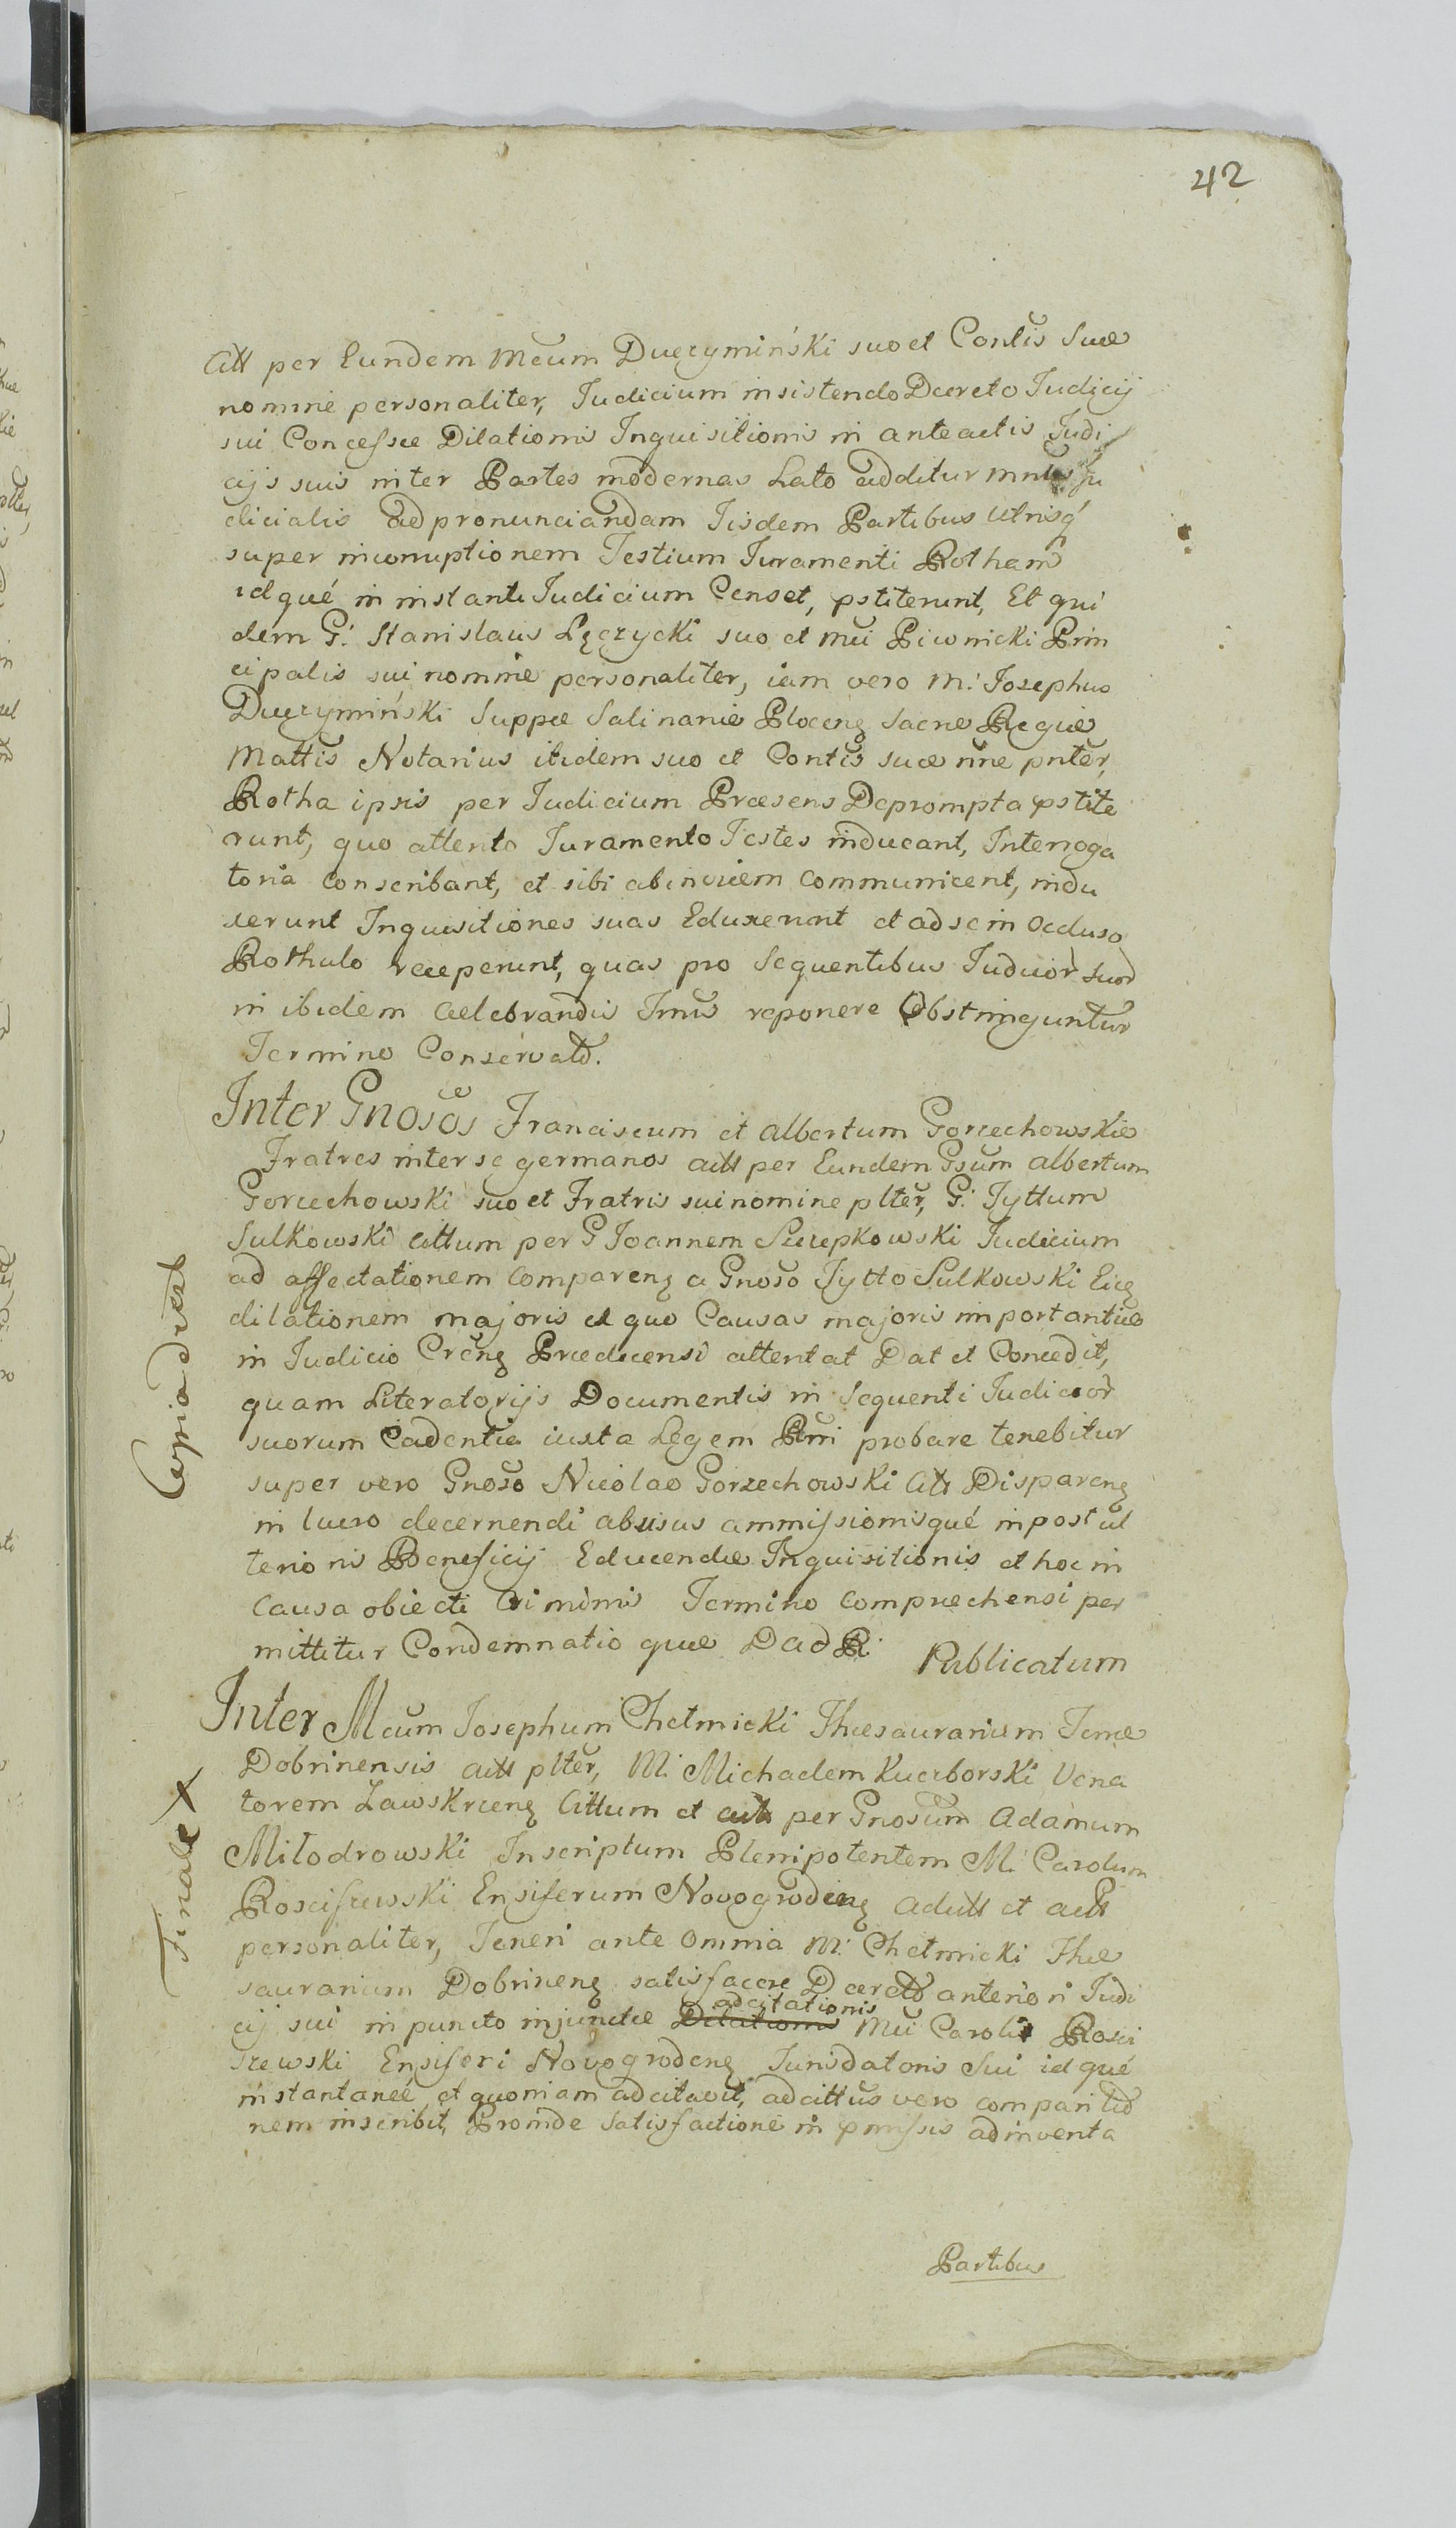 42
Citt per Eundem Mcum Duczymiński suo et Contis Suæ
nomine personaliter, Iudicium insistendo Decreto Iudicij
sui Concessæ Dilationis Inquisitionis in anteactis Iudi
cijs suis inter Partes modernas Lato additur Ju
dicialis ad pronunciandam Iisdem Partibus Utrisq
super incorruptionem Testium Iuramenti Rotham
idqué in instanti Iudicium Censet, pstiterunt, Et qui
dem G: Stanislaus Lęczycki suo et Mci Piwnicki Prin
cipalis sui nomine personaliter, iam vero M: Iosephus
Duczymiński Suppæ Salinariæ Plocenȩ Sacræ Regiæ
Mattis Notarius itidem suo et Contis suæ nne pnter,
Rotha ipsis per Iudicium Præsens Deprompta pstite
runt, quo attento Iuramento Testes inducant, Interroga
toria conscribant, et sibi abinvicem communicent, indu
xerunt Inquisitiones suas Eduxerunt et ad se in occluso
Rothulo receperunt, quas pro Sequentibus Iudicior suor
in ibidem Celebrandis Trnis reponere Obstringuntur
Termino Conservato.
Inter Gnosos Franciscum et Albertum Gorzechowskie
Fratres inter se germanos actt per Eundem Gsum Albertum
Gorzechowski suo et Fratris sui nomine plter, G: Tyttum
Sulkowski Cittum per G Joannem Szczepkowski Iudicium
ad affectationem Comparenȩ a Gnoso Tytto Sulkowski Eicȩ
dilationem majoris ex quo Causas majoris importantiæ
in Iudicio Crenȩ Præcicensi attentat Dat et Concedit,
quam Literatorijs Documentis in Sequenti Iudicior
suorum Cadentia iuxta Legem Rni probare tenebitur
super vero Gnoso Nicolao Gorzechowski Citt Disparenȩ
in lucro decernendi abusus ammissionisqué in post ul
terioris Beneficij Educendæ Inquisitionis et hoc in
Causa obiecti Criminis Termino compræhensi per
mittitur Condemnatio quæ Dad R: Publicatum
Copia dt est
Inter Mcum Iosephum Chelmicki Thesaurarium Terræ
Dobrinensis actt plter, M: Michaelem Kuczborski Vena
torem Zawskrzenȩ Cittum et actt per Gnosum Adamum
Milodrowski Inscriptum Plenipotentem M: Carolum
Roscissewski Ensiferum Novogrodenȩ adcitt et actt
personaliter, Teneri ante omnia M: Chelmicki The
saurarium Dobrinenȩ satisfacere Decreto anteriori Iudi
cij sui in puncto injunctæ Dilationis adcitationis Mci Caroli Rosci
szewski Ensiferi Novogrodenȩ Iurisdatoris Sui idqué
instantaneé et quoniam adcitavit, adcittus vero comparitio
nem inscribit, Proinde Satisfactione in pmissis adinventa
Finale X
Partibus